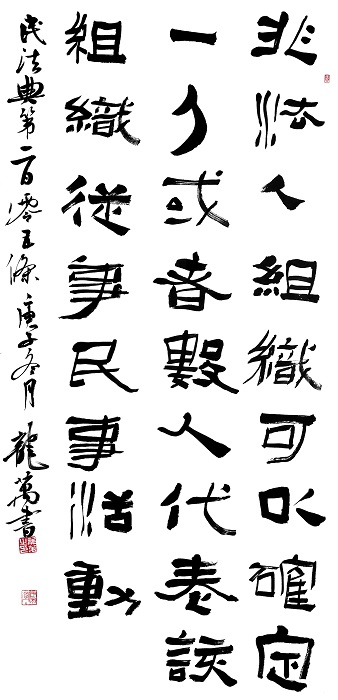 非法人組織可以確定
一人或者數人代表該
組織從事民事活動
民法典第一百零五條庚子冬月龍萬書